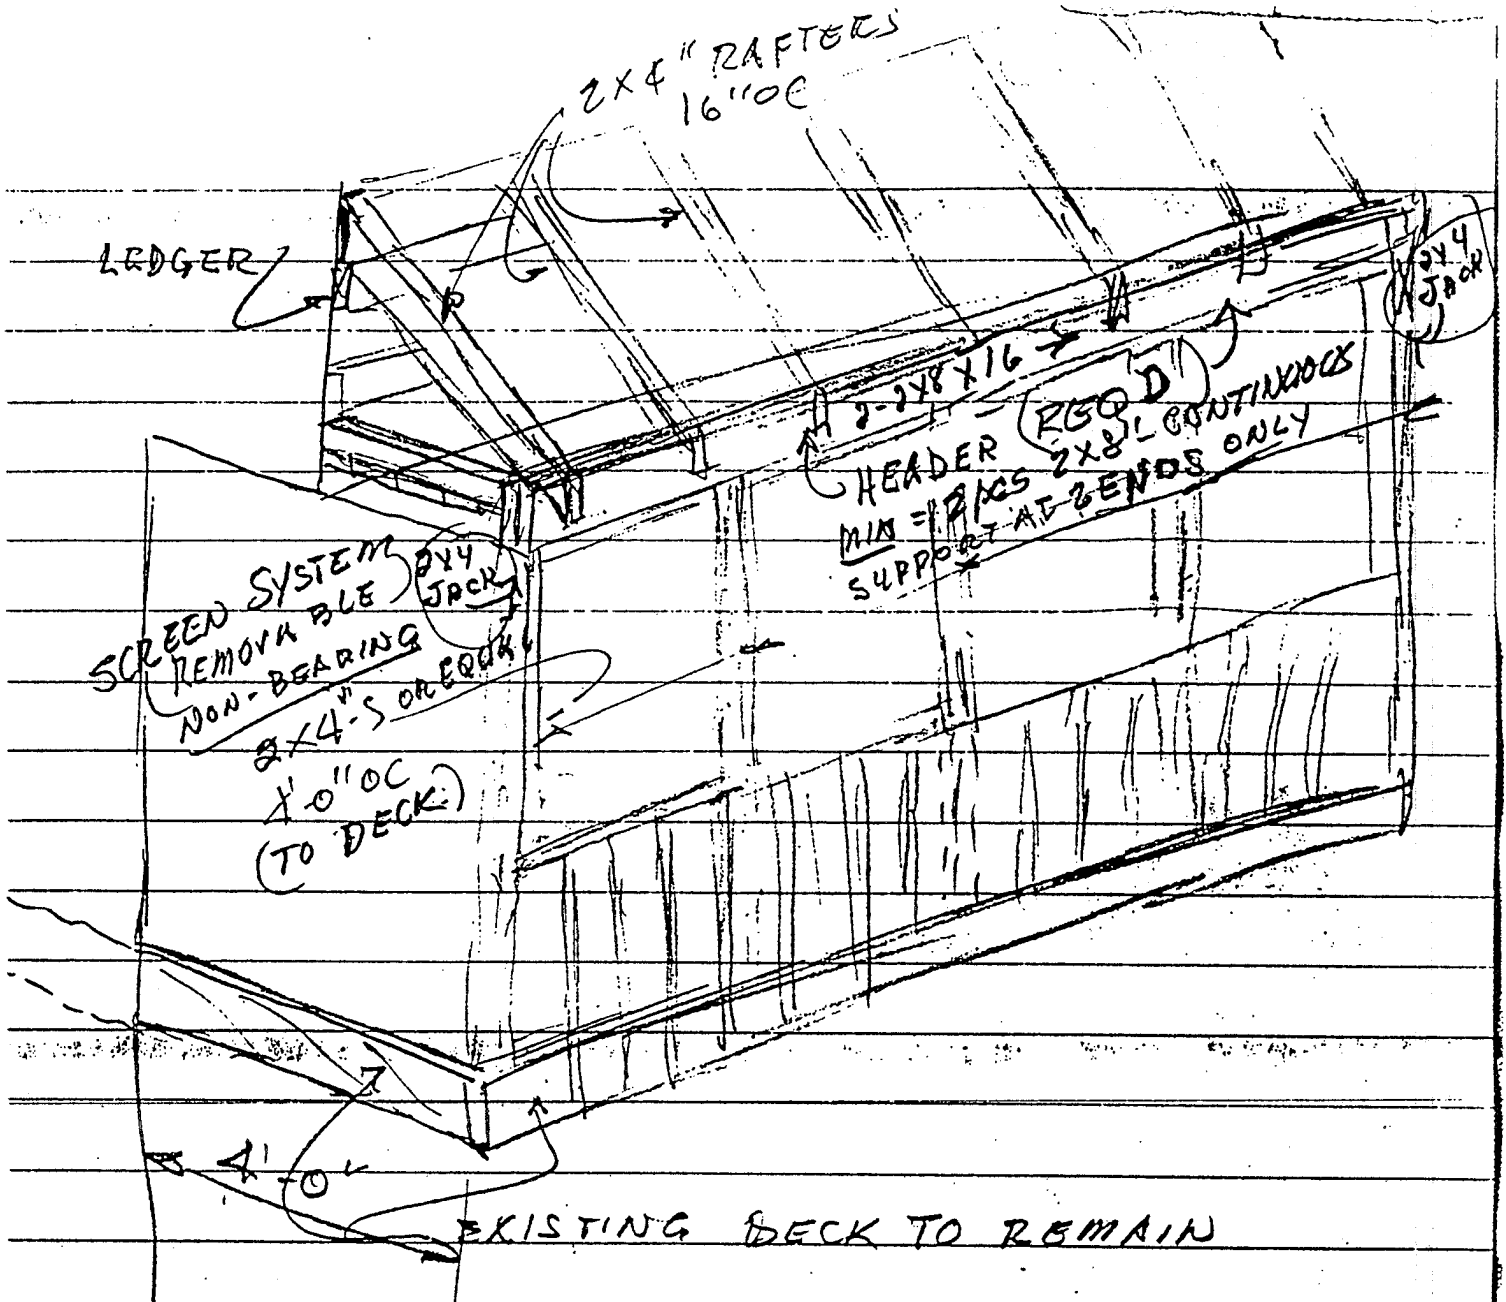 2X4" RAFTERS
16"OC
LEDGER
2X4
JACK
2-2X8X16
HEADER (REQD)
MIN = 2 PCS 2X8'S CONTINUOUS
SUPPORT AT 2 ENDS ONLY
SCREEN SYSTEM
REMOVABLE
NON-BEARING
2X4
JACK
2X4"-S OR EQUAL
4'-0" OC
(TO DECK)
4'-0"
EXISTING DECK TO REMAIN